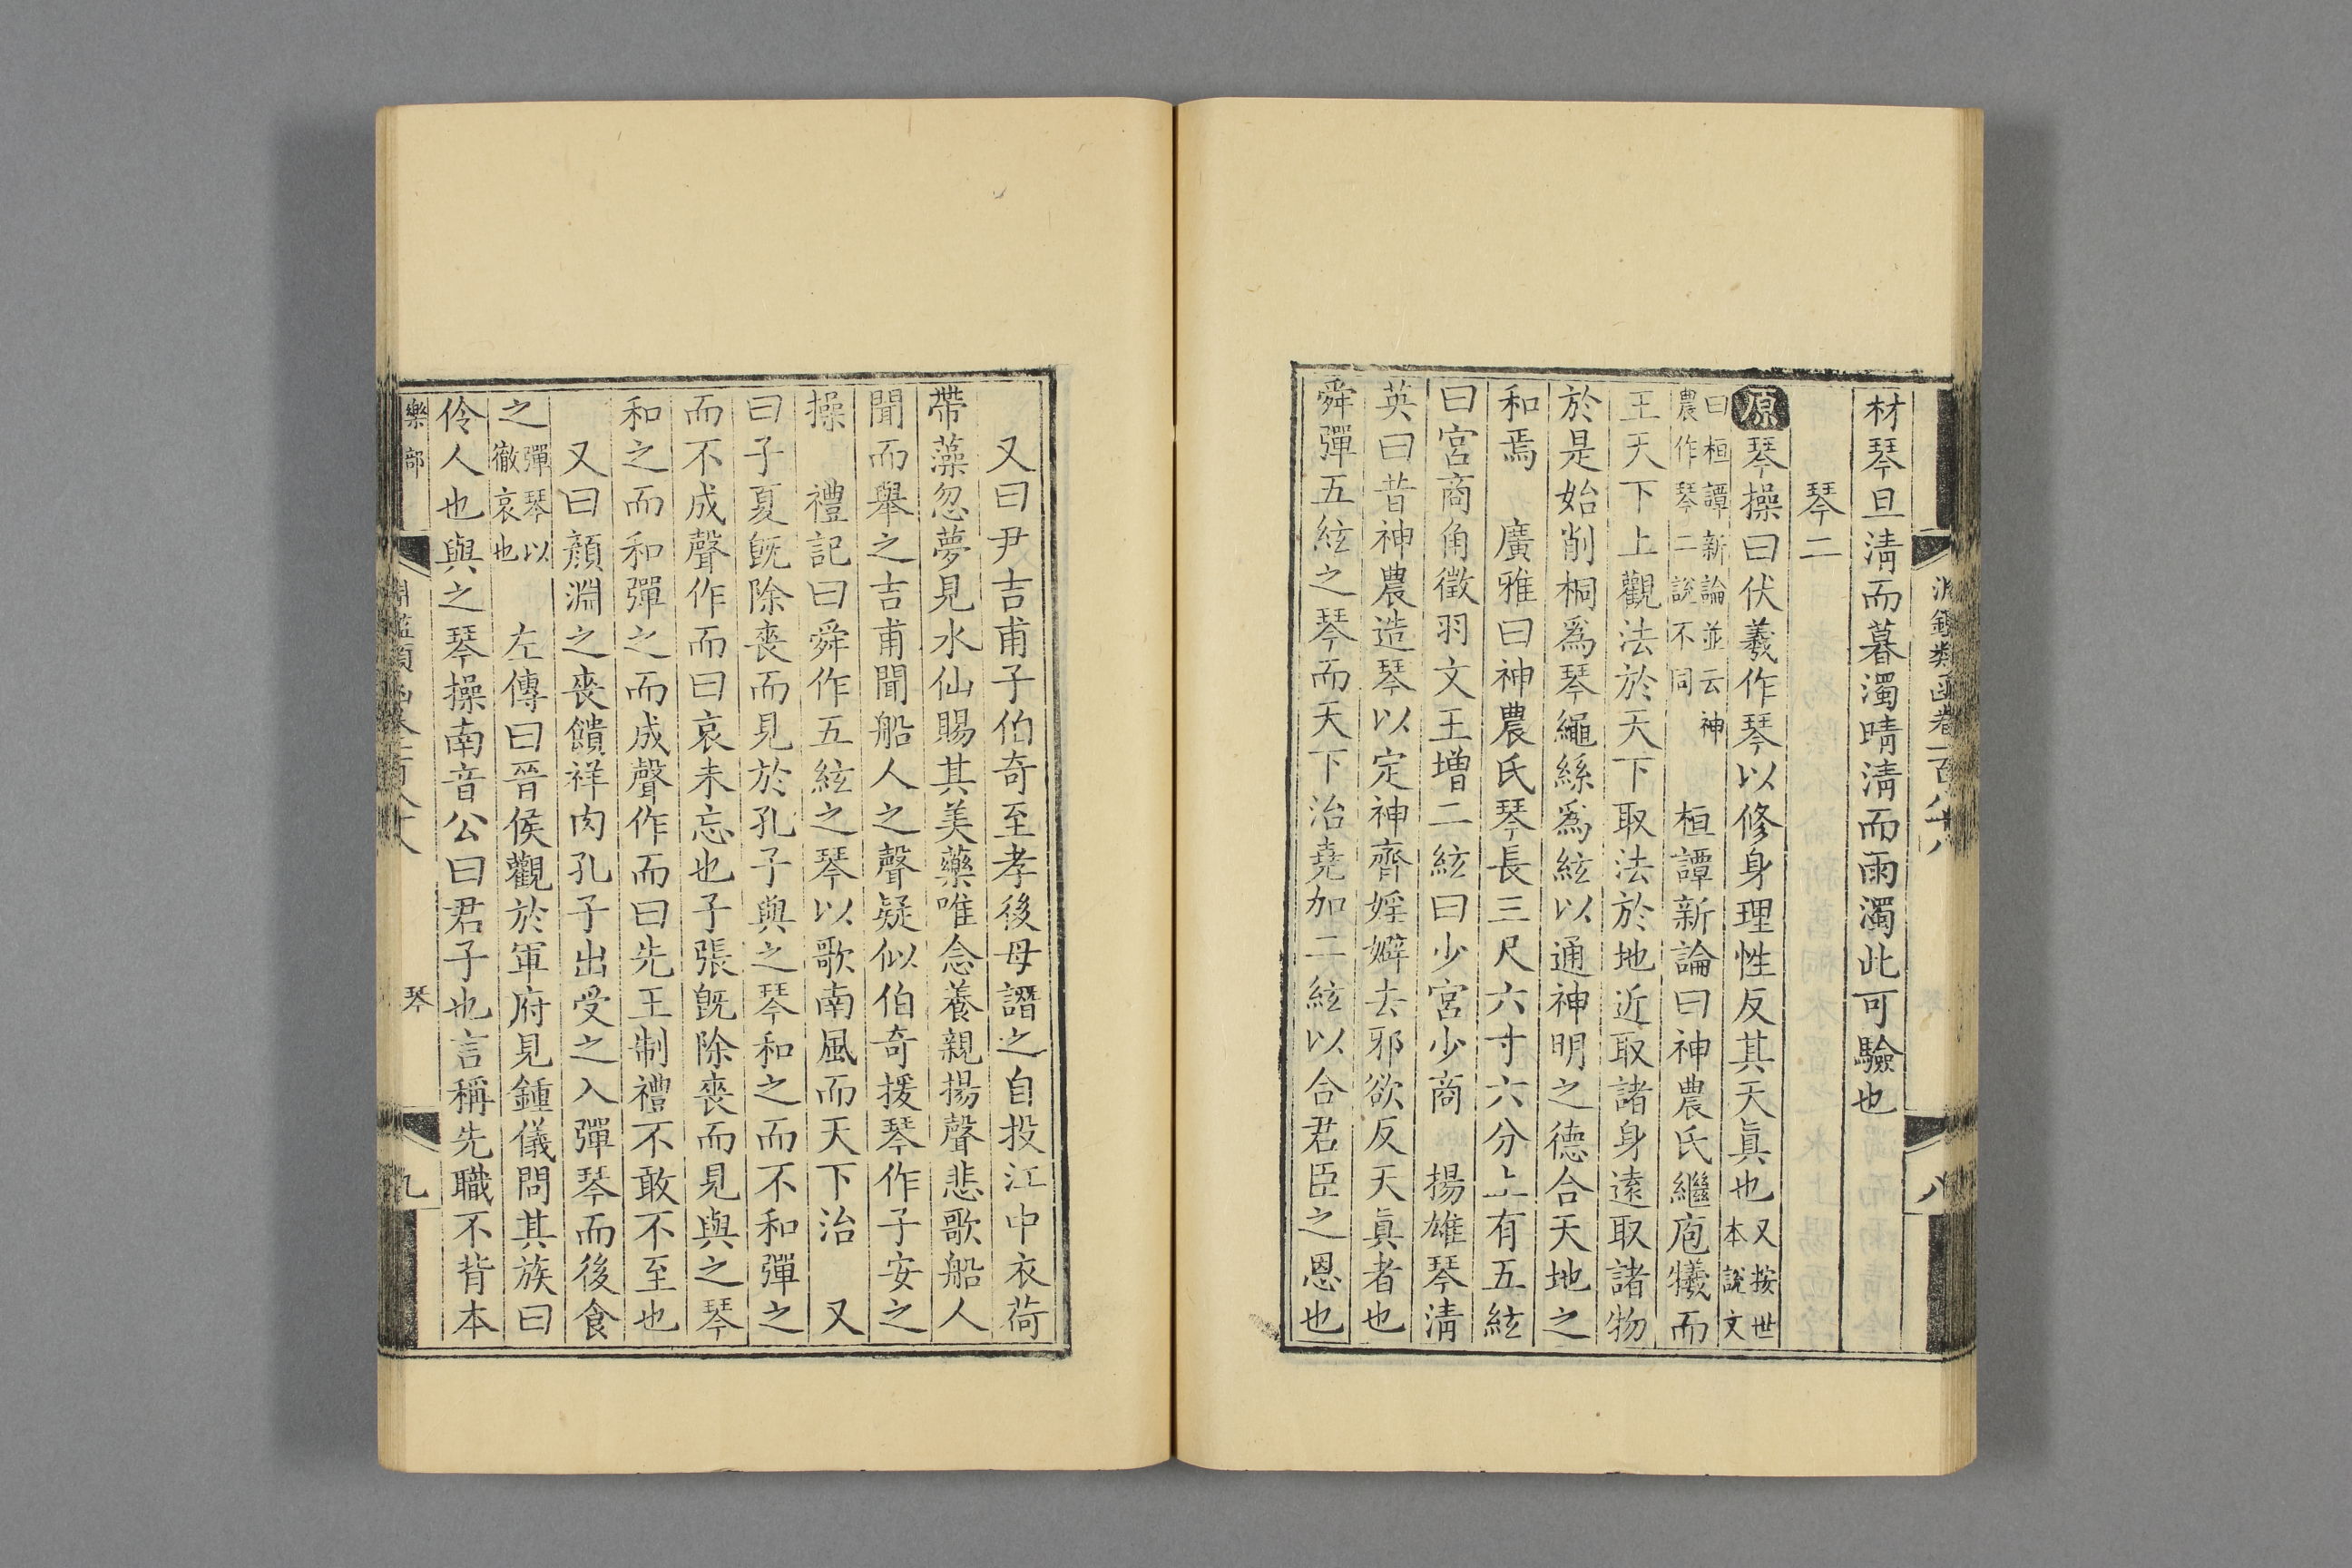 材琴旦淸而暮濁晴淸而雨濁此可驗也
琴二
原琴操曰伏羲作琴以修身理性反其天眞也又按世本說文
曰桓譚新論並云神農作琴二說不同桓譚新論曰神農氏繼庖犧而
王天下上觀法於天下取法於地近取諸身遠取諸物
於是始削桐爲琴繩絲爲絃以通神明之德合天地之
和焉　廣雅曰神農氏琴長三尺六寸六分上有五絃
曰宮商角徵羽文王增二絃曰少宮少商　揚雄琴淸
英曰昔神農造琴以定神齊婬嬖去邪欲反天眞者也
舜彈五絃之琴而天下治堯加二絃以合君臣之恩也
又曰尹吉甫子伯奇至孝後母譖之自投江中衣荷
帶藻忽夢見水仙賜其美藥唯念養親揚聲悲歌船人
聞而舉之吉甫聞船人之聲疑似伯奇援琴作子安之
操　禮記曰舜作五絃之琴以歌南風而天下治　又
曰子夏旣除喪而見於孔子與之琴和之而不和彈之
而不成聲作而曰哀未忘也子張旣除喪而見與之琴
和之而和彈之而成聲作而曰先王制禮不敢不至也
又曰顏淵之喪饋祥肉孔子出受之入彈琴而後食
之彈琴以徹哀也　左傳曰晉侯觀於軍府見鍾儀問其族曰
伶人也與之琴操南音公曰君子也言稱先職不背本
樂部
琴
九